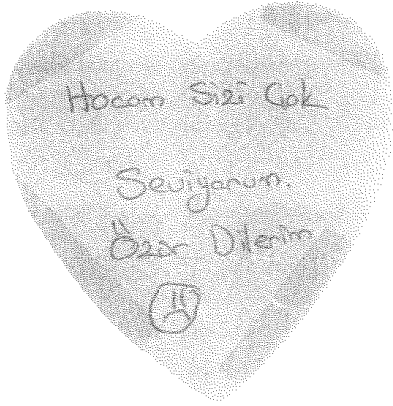 Hocam Sizi Çok
Seviyorum.
Özür Dilerim